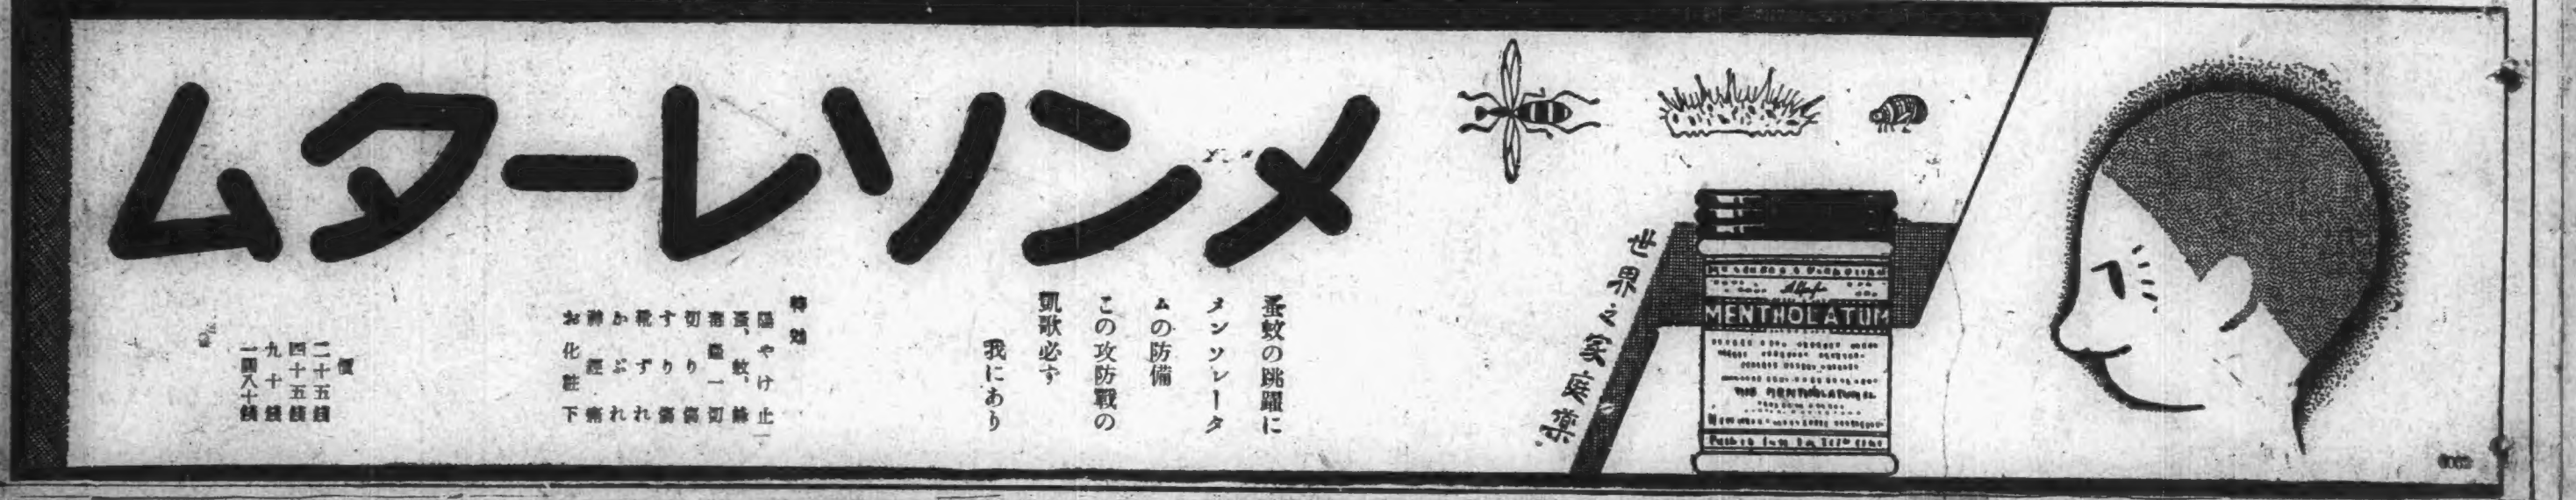 世界之家庭藥
MENTHOLATUM
メンソレータム
蚤蚊の跳躍に
メンソレータ
ムの防備
この攻防戰の
凱歌必ず
我にあり
特効
陽やけ止
蚤、蚊、
毒蟲一切
切り傷
すり傷
靴ずれ
かぶれ
神經痛
お化粧下
價
二十五錢
四十五錢
九十錢
一圓八十錢